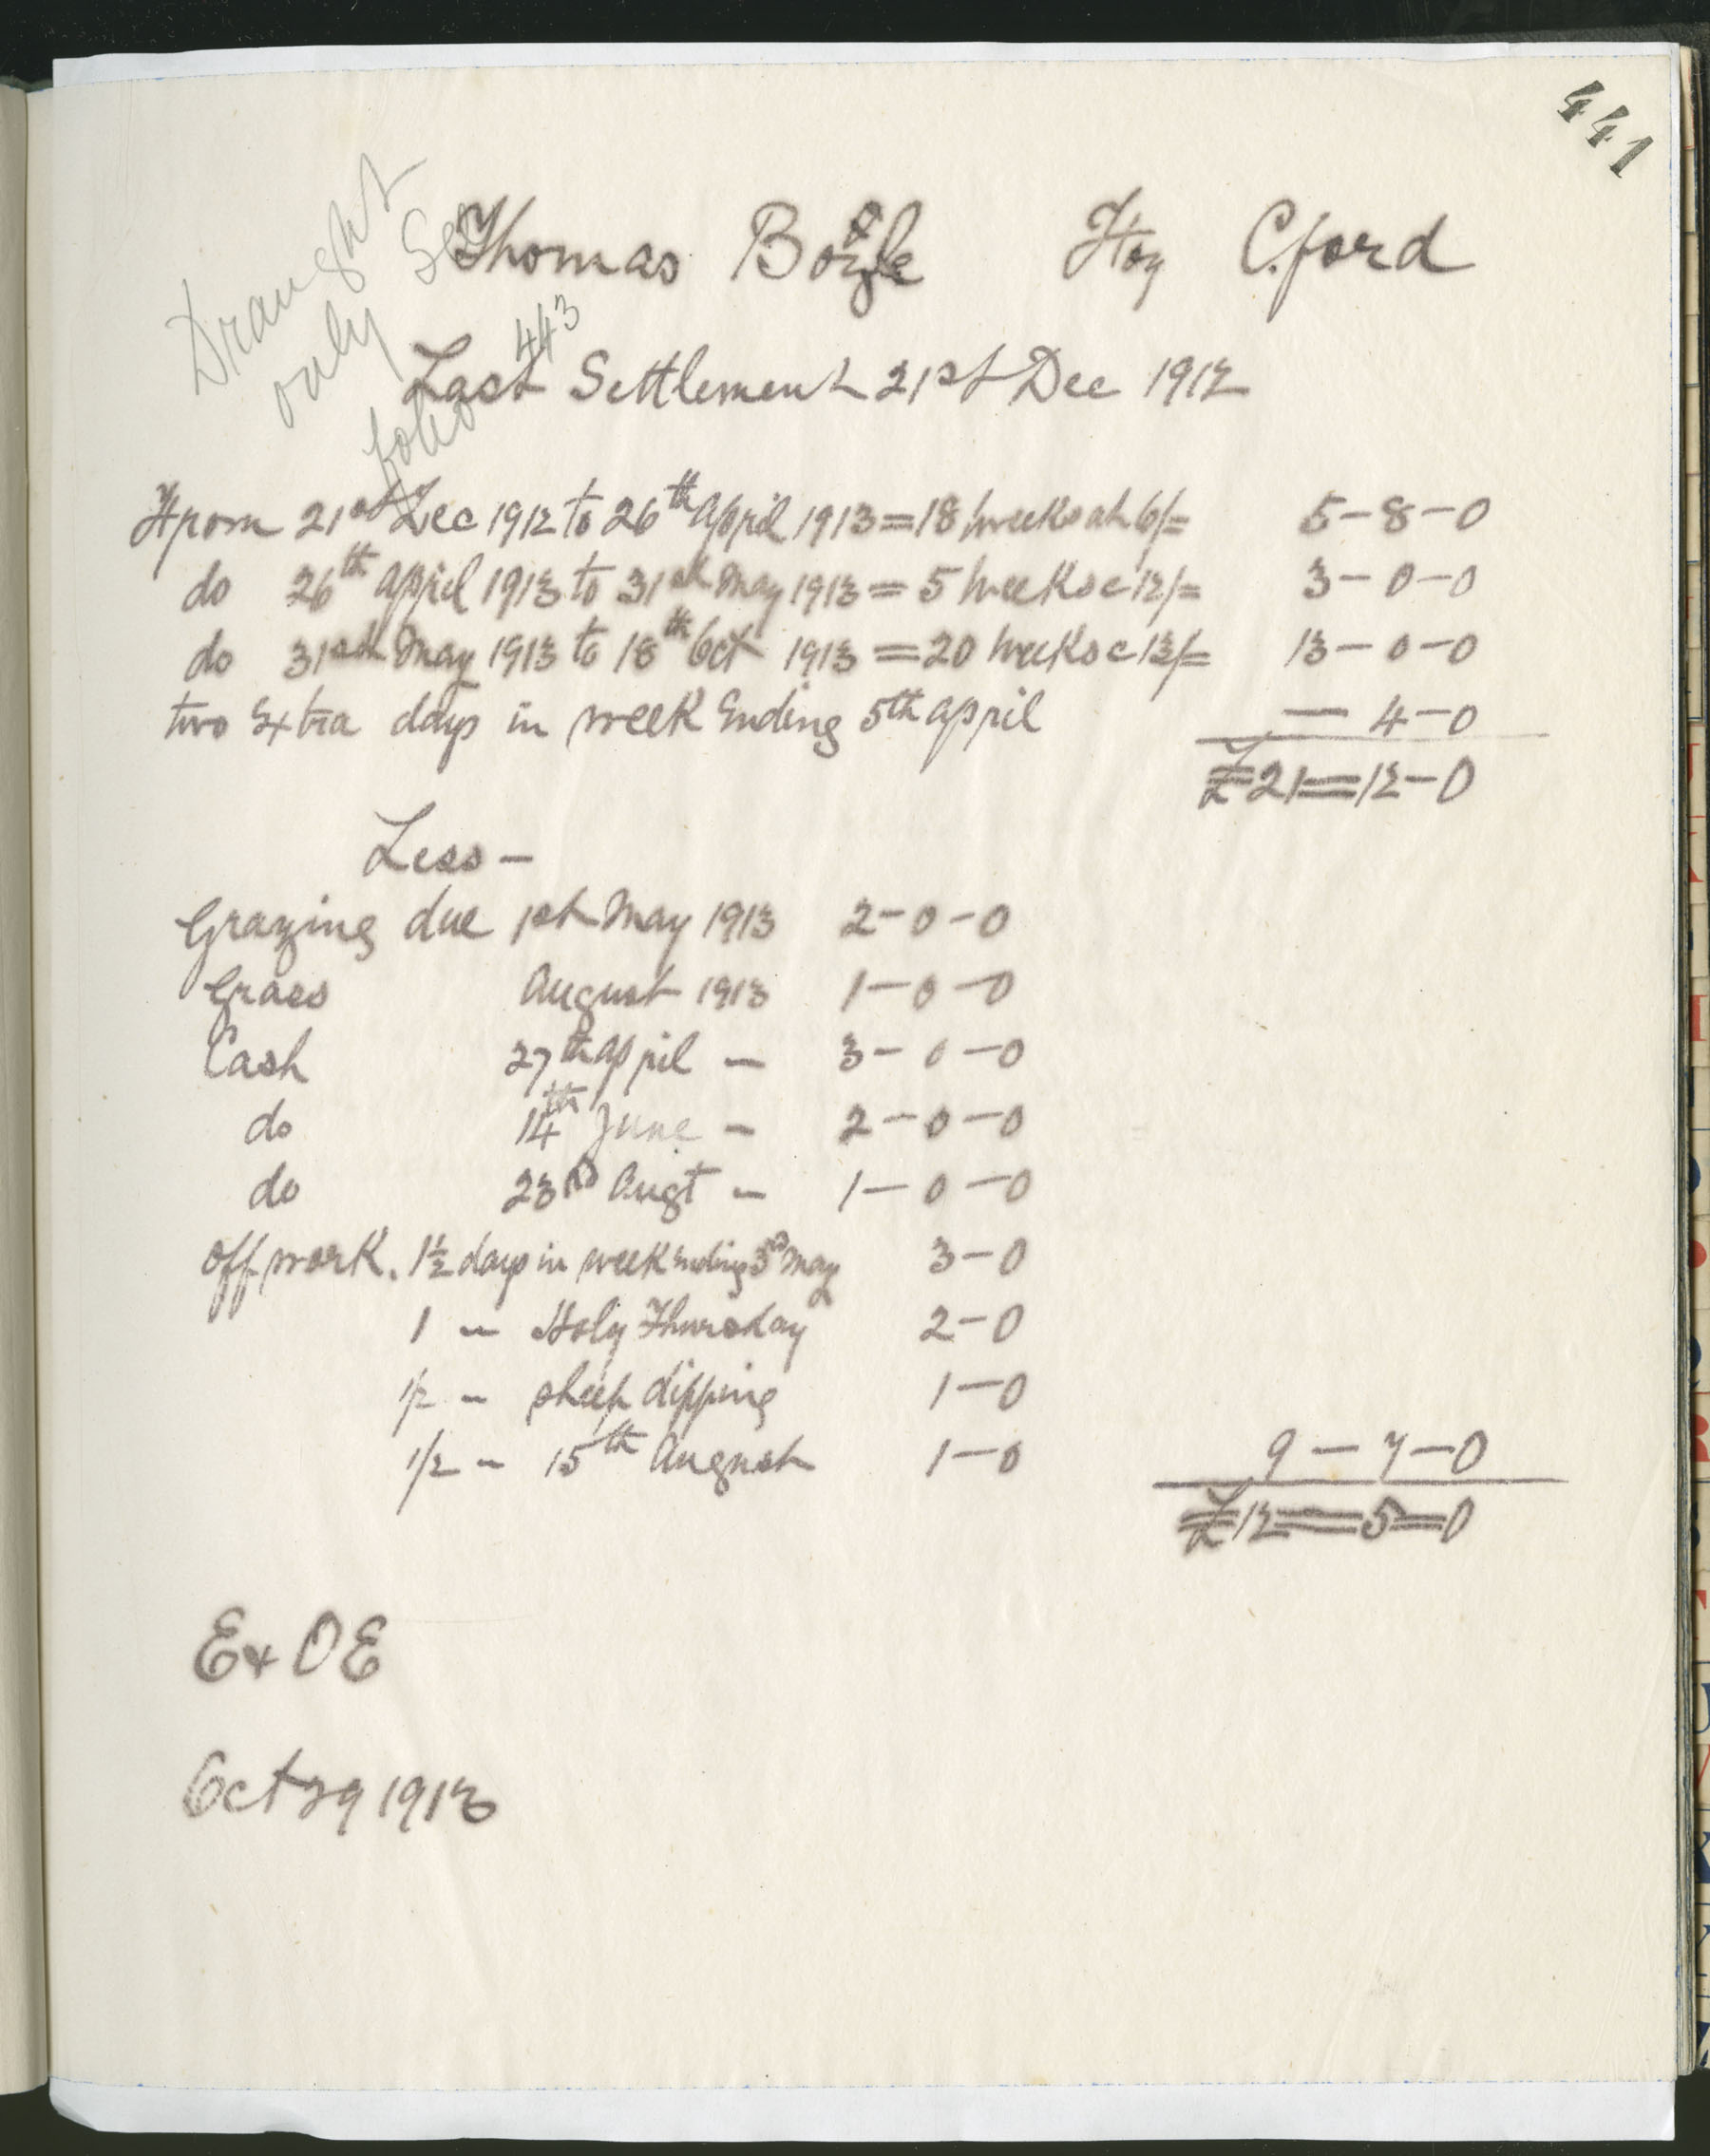 441
Draught
only See
folio 443
Thomas Boyle Hoy C.ford
Last Settlement 21st Dec 1912
From 21st Dec 1912 to 26th April 1913 = 18 weeks at 6/= 5-8-0
do 26th April 1913 to 31st May 1913 = 5 weeks @ 12/= 3-0-0
do 31st May 1913 to 18th Oct 1913 = 20 weeks @ 13/= 13-0-0
two Extra days in week Ending 5th April — 4-0
£21=12-0
Less -
Grazing due 1st May 1913 2-0-0
Grass August 1913 1-0-0
Cash 27th April - 3-0-0
do 14th June - 2-0-0
do 23rd Augt - 1-0-0
Off work. 1½ days in week Ending 3rd May 3-0
1 - Holy Thursday 2-0
1/2 - sheep dipping 1-0
1/2 - 15th August 1-0 9-7-0
£12=5=0
E & O E
Oct 29 1913